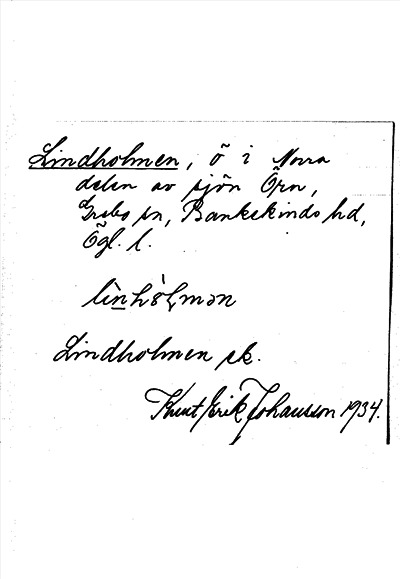 Lindholmen, ö i Norra
delen av sjön Örn,
Grebo sn, Bankekinds hd,
Ögl. l.
Lindholmen sk.
Knut Erik Johansson 1934.